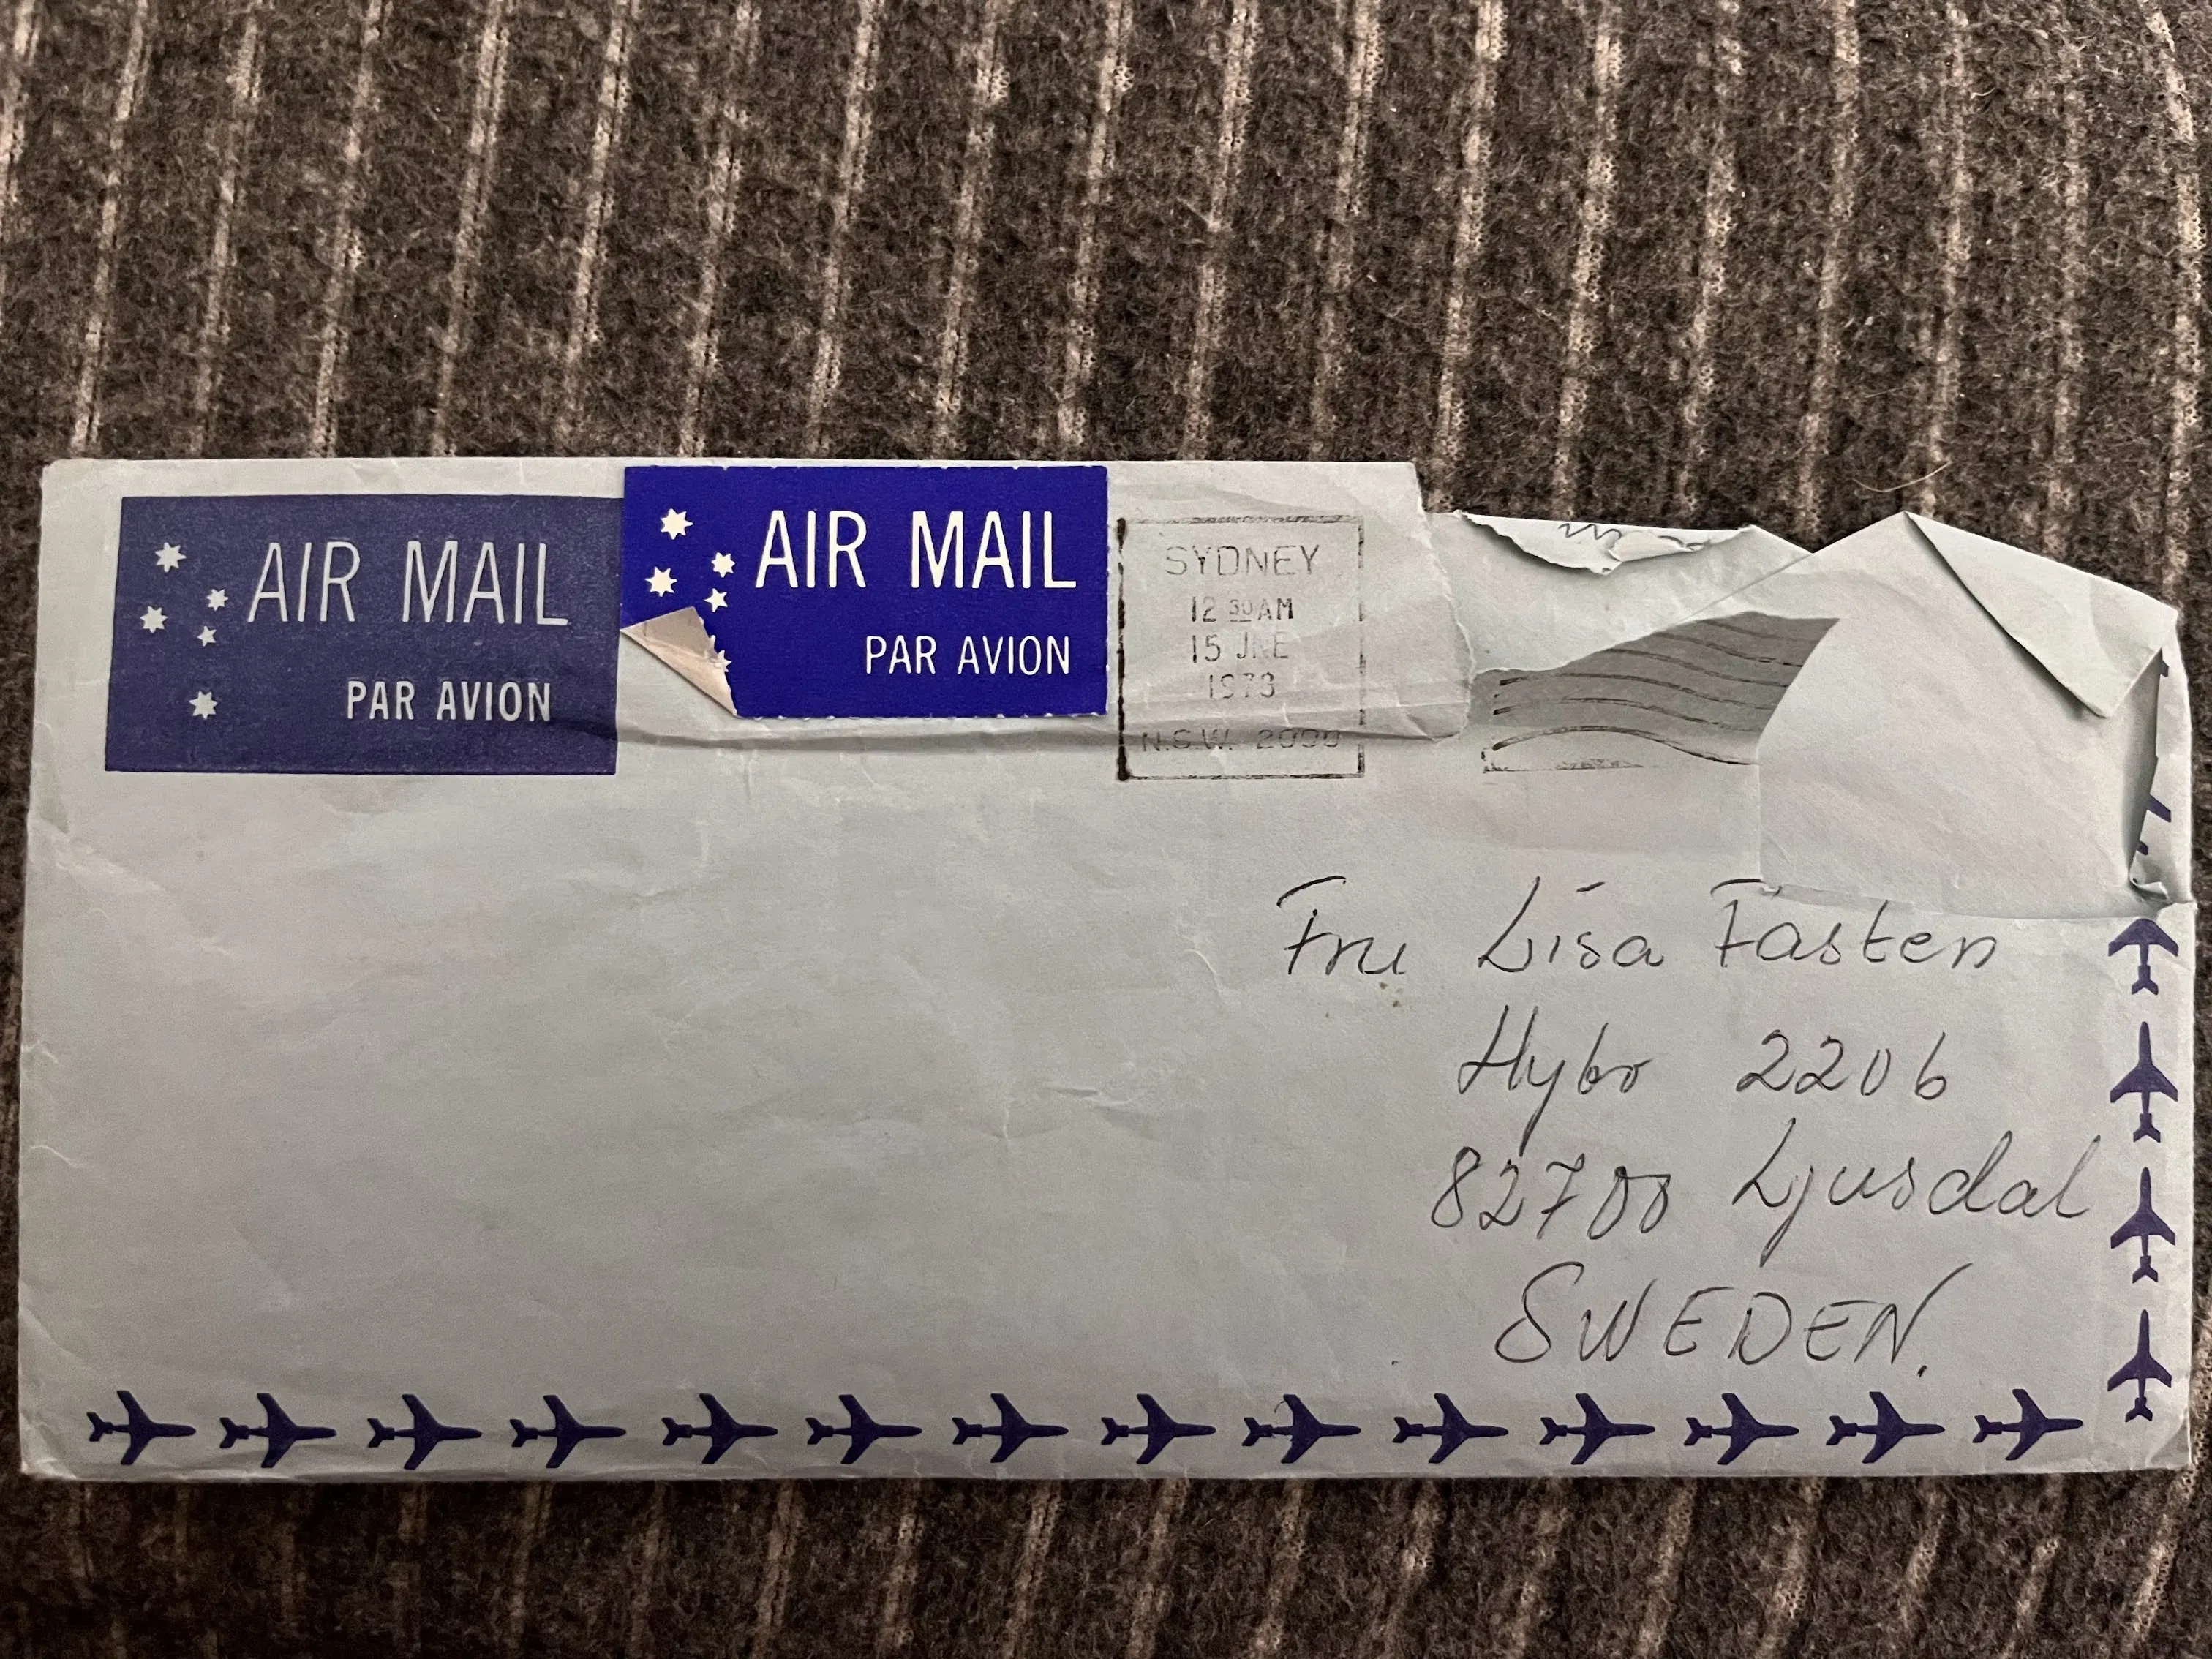 AIR MAIL
PAR AVION
AIR MAIL
PAR AVION
SYDNEY
12 30 AM
15 JNE
1978
N.S.W. 2000
Fru Lisa Fasten
Hybo 2206
82700 Ljusdal
SWEDEN.